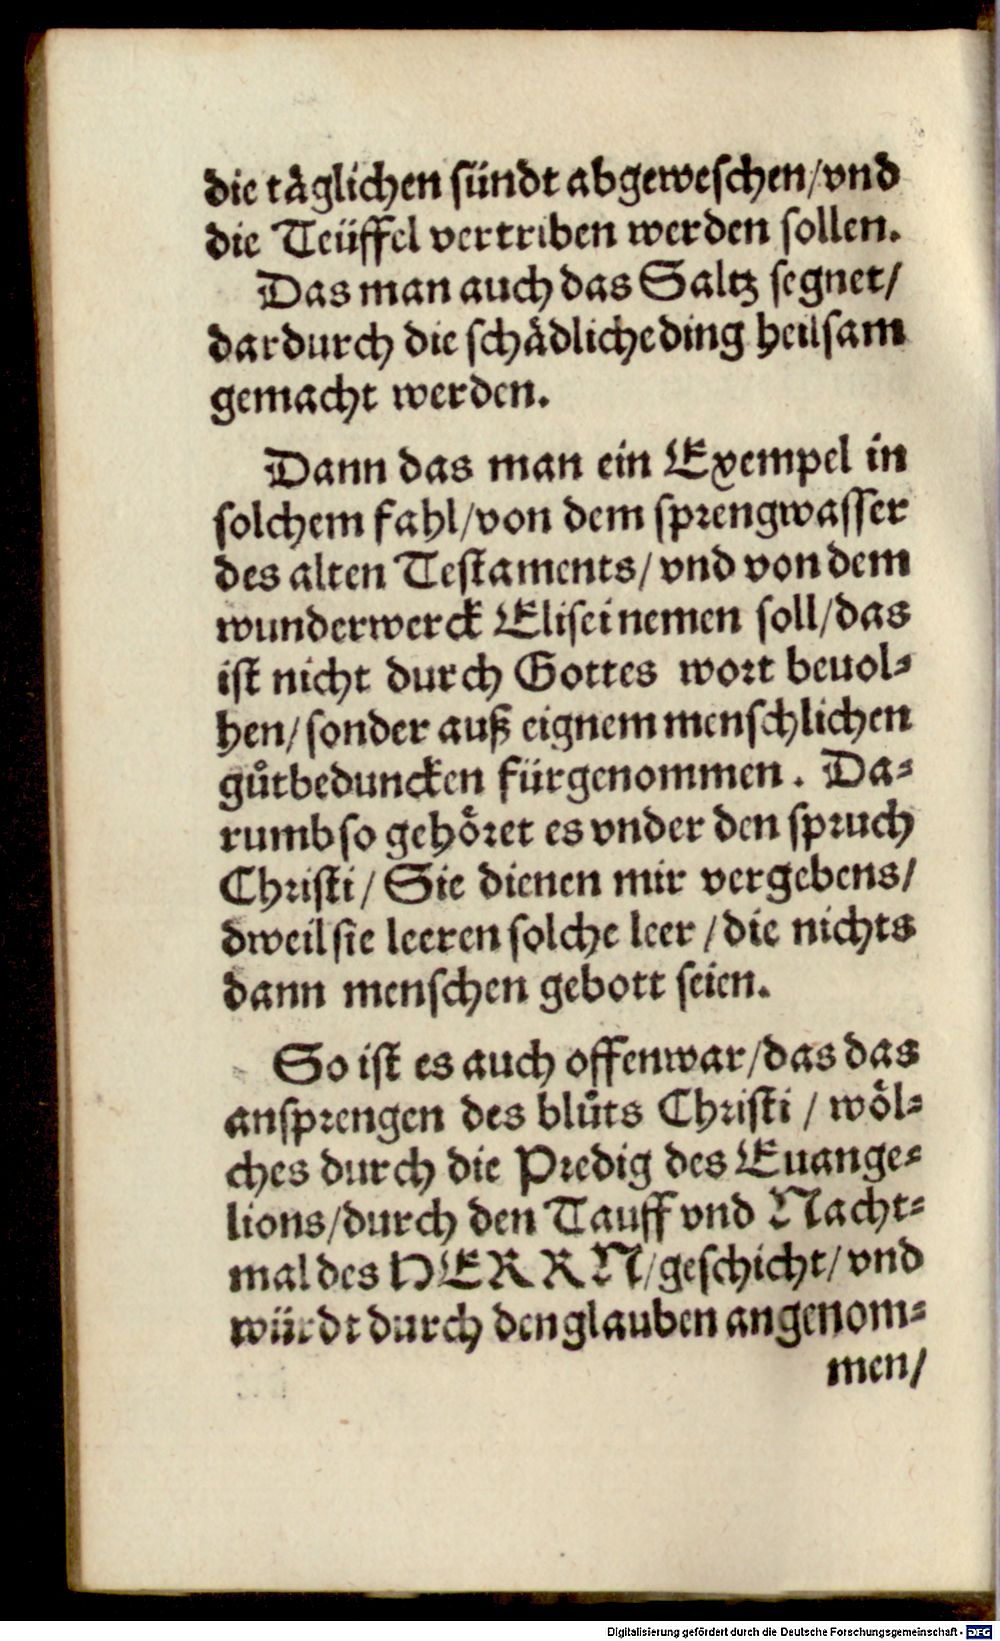 die täglichen sündt abgeweschen/vnd
die Teüffel vertriben werden sollen.
Das man auch das Saltz segnet/
dardurch die schädliche ding heilsam
gemacht werden.
Dann das man ein Exempel in
solchem fahl/von dem sprengwasser
des alten Testaments/vnd von dem
wunderwerck Elisei nemen soll/das
ist nicht durch Gottes wort beuol⸗
hen/sonder auß eignem menschlichen
gůtbeduncken fürgenommen. Da⸗
rumb so gehöret es vnder den spruch
Christi/ Sie dienen mir vergebens/
dweil sie leeren solche leer/die nichts
dann menschen gebott seien.
So ist es auch offenwar/das das
ansprengen des blůts Christi/ wöl⸗
ches durch die Predig des Euange⸗
lions/durch den Tauff vnd Nacht⸗
mal des HERRN/geschicht/vnd
würdt durch den glauben angenom⸗
men/
Digitalisierung gefördert durch die Deutsche Forschungsgemeinschaft - DFG